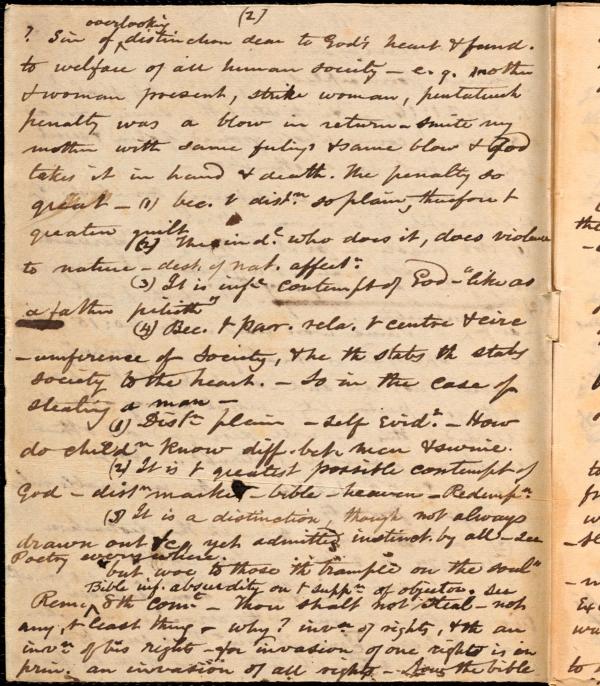 (2)
overlooking
? Sin of distinction dear to God's heart & fund.
to welfare of all human society – e.g. mother
& woman present, strike woman, pentateuch
penalty was a blow in return – smite my
mother with same & same blow & God
takes it in hand & death. The penalty so
great – (1) bec. t distn so plain, therefore t
greater guilt
(2) The indl. who does it, does violence
to nature – dest. of nat. affectn.
(3) It is contempt of God – "like as
a father pitieth"
(4) Bec. t par. rela. t centre & circ
-umference of Society, & he th stabs th stabs
society to the heart. – So in the case of
stealing a man –
(1) Distn plain – self Evidt. – How
do childn know diff. bet. men & swine.
(2) It is t greatest possible contempt of
God – distn marked – bible – heaven – Redempn
(3) It is a distinction, though not always
drawn out &c, yet admitted instinct. by all – see
Poetry everywhere
"but woe to those th trample on the soul"
Bible absurdity on t suppn. of objector. See
Remc 8th comt – thou shalt not Steal – not
any, t least thing – why? invn. of rights, & th an
invn. of his rights – for invasion of one right is in
prin. an invasion of all rights – the bible